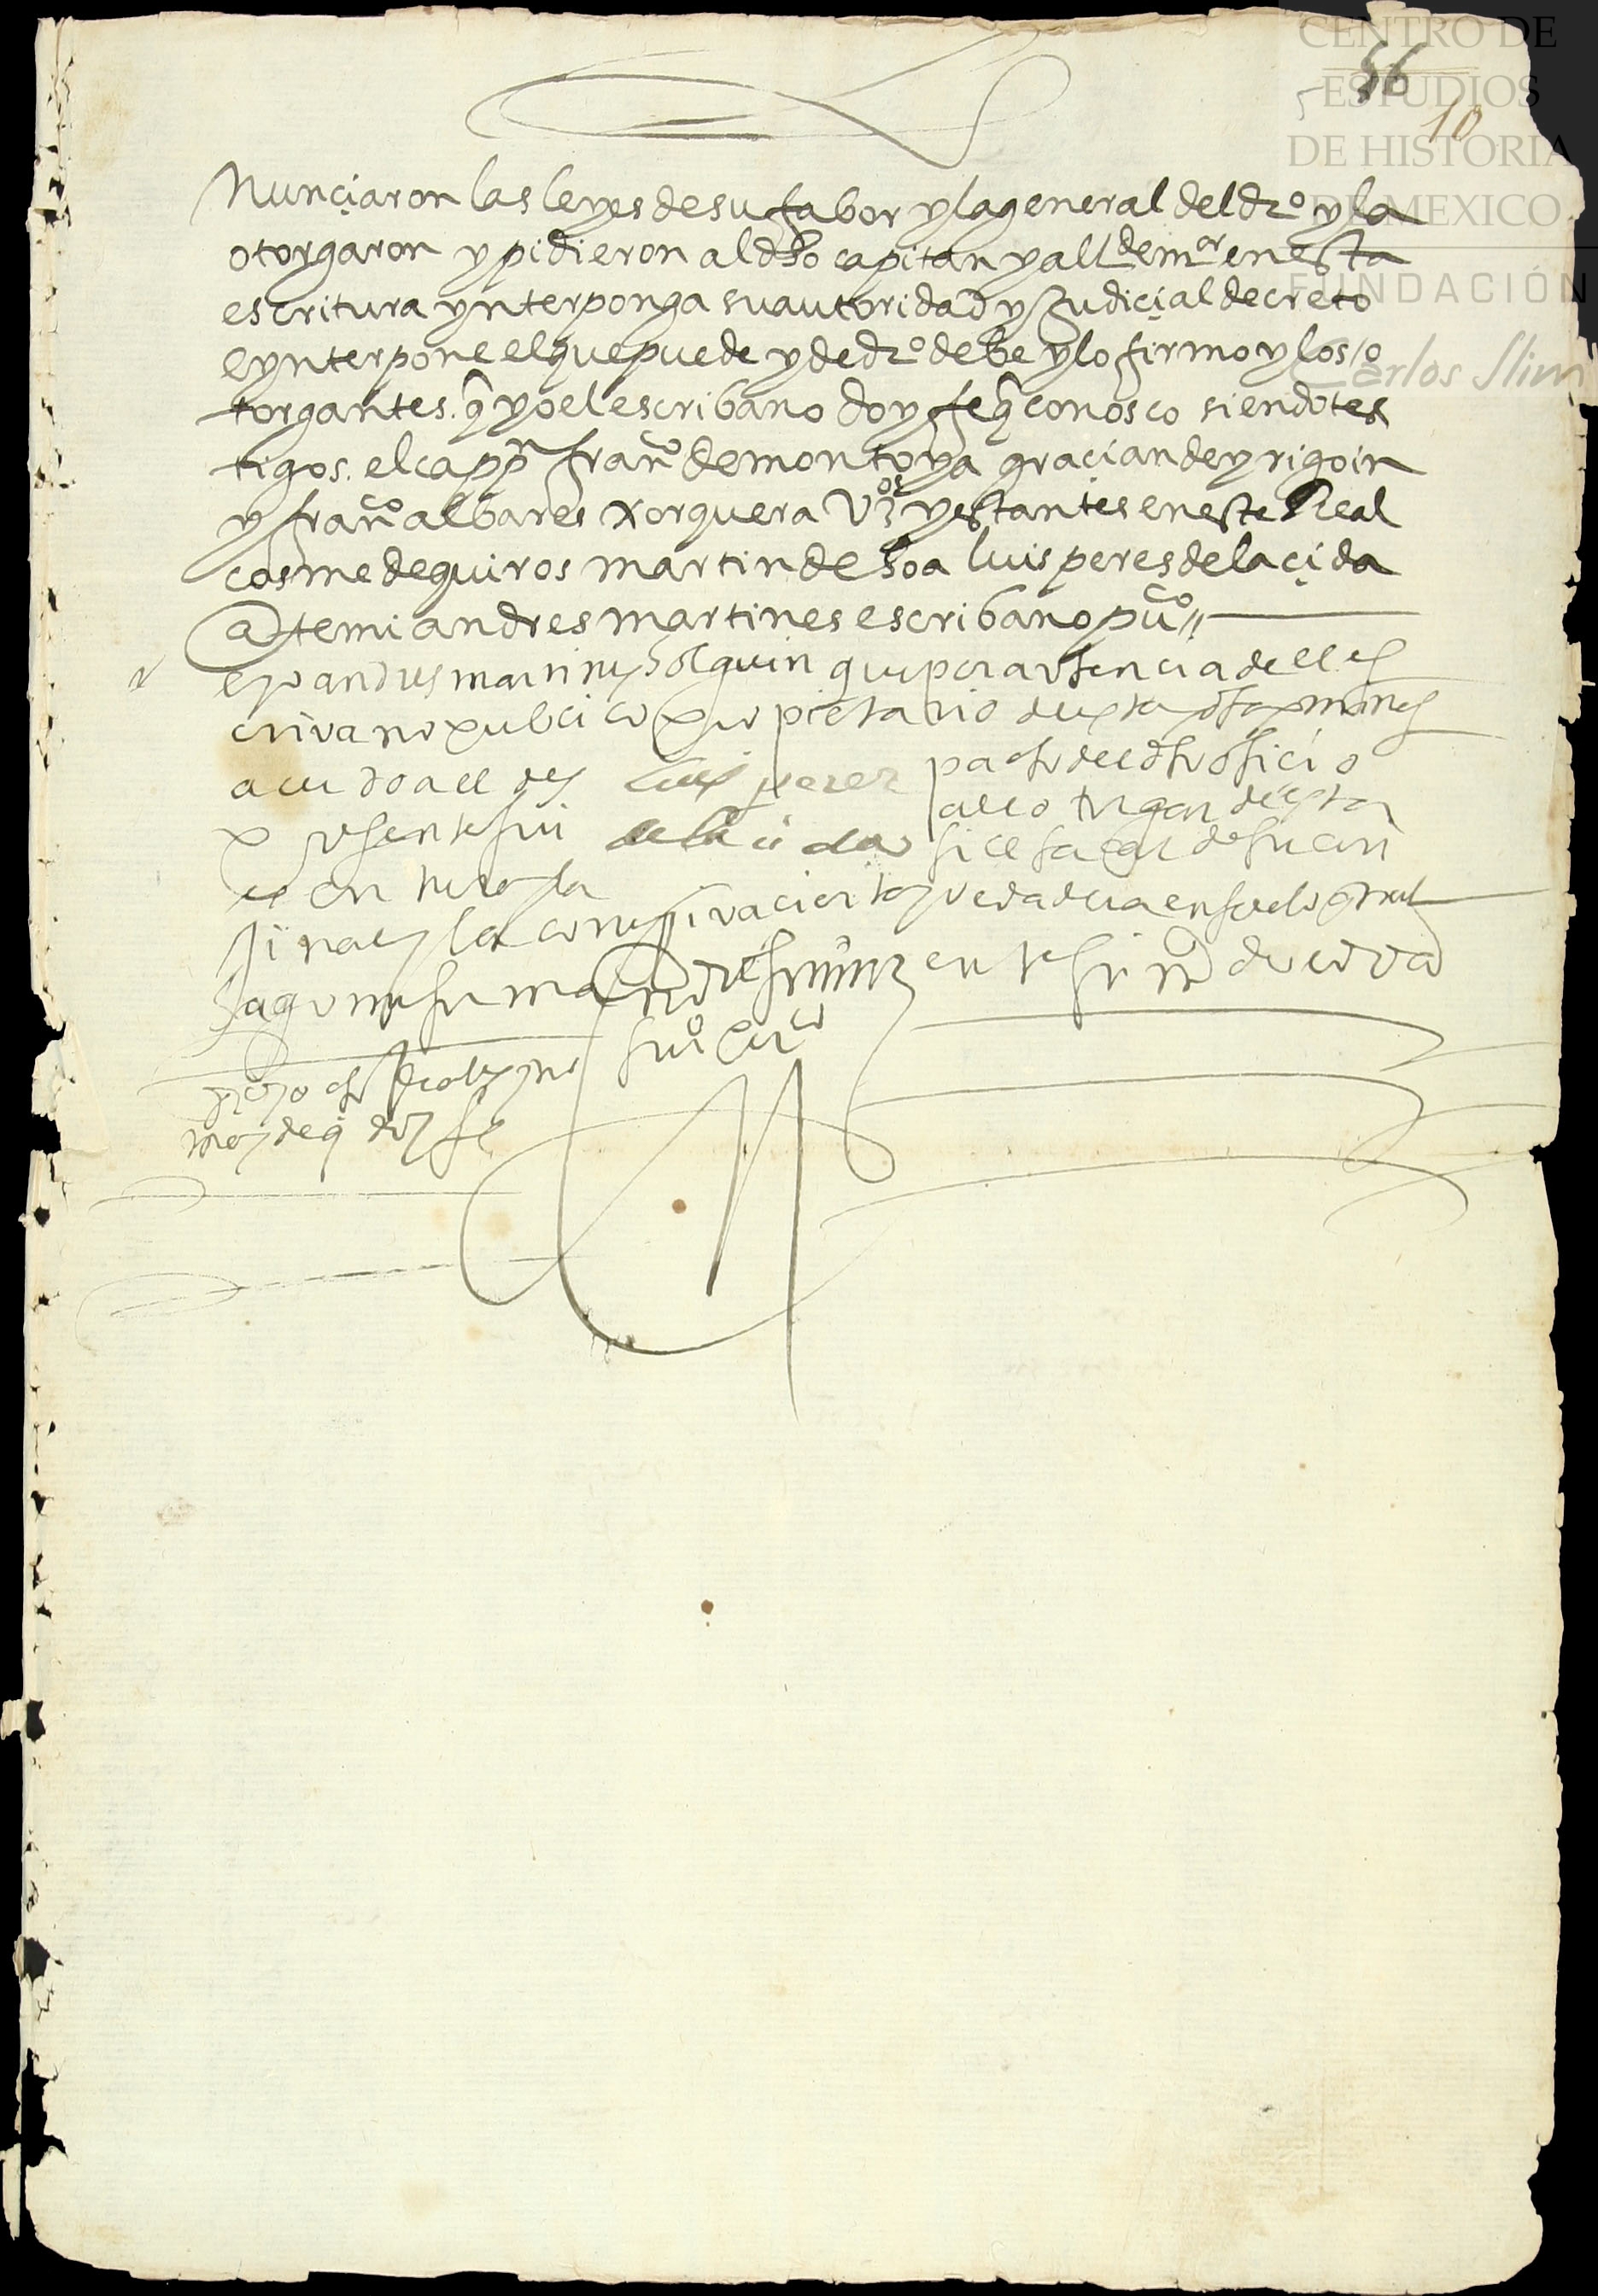 56
10
CENTRO DE
ESTUDIOS
DE HISTORIA
DE MEXICO
FUNDACIÓN
Carlos Slim
Nunçiaron las leyes de su fabor y la general del dro y la
otorgaron y pidieron al dho capitan y alld de mor en esta
escritura ynterponga su autoridad y judiçial decreto
e ynterpone el que puede y de dro debe y lo firmo y los o
torgantes. q yo el escribano doy fe q conosco siendo tes
tigos. el cappn franco de montoya graçian de yrigoin
y franco albares xorquera vzos y estantes en este Real
cosme de quiros martin de hoa luis peres de la çida
Ante mi andres martines escribano puco
e yo andres martines holguin que por avsencia del es
crivano publico propietario desta
acudo al des pacho del dho oficio
presente fui al otorgar desta
escritura y la fice sacar
luis perez
de la cida
ginal y la corregi va cierta y verdadera en fee de lo qual
hago mi firma andres mnz en testimo de verdad
ssno puco
doy fe